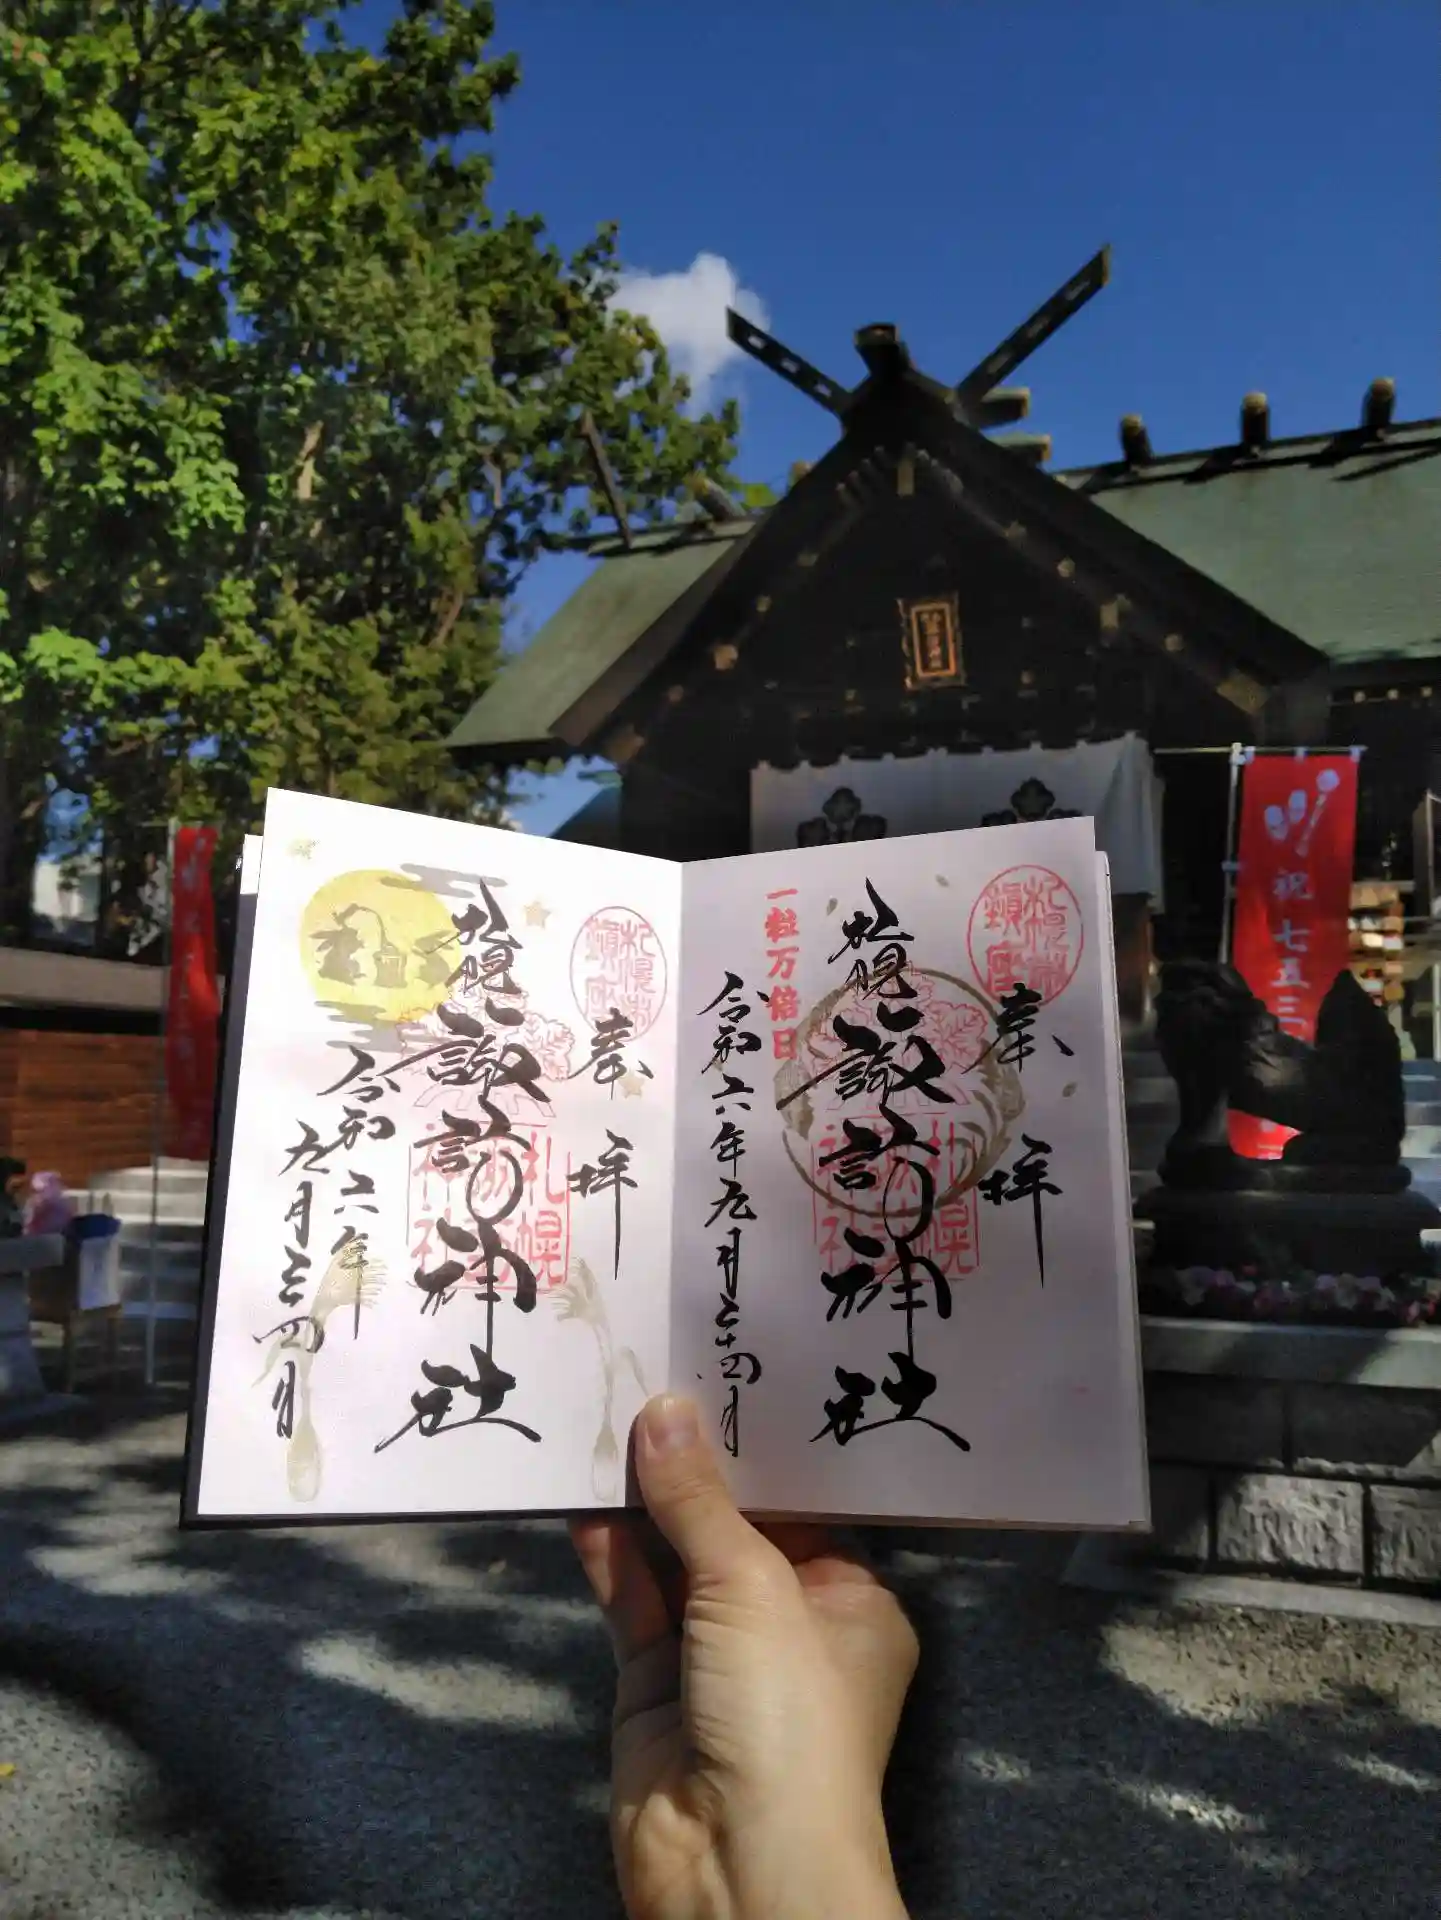 奉拝
札幌諏訪神社
令和六年
九月二十四日
札幌市
鎮座
札幌
諏訪
神社
奉拝
札幌諏訪神社
一粒万倍日
令和六年九月二十四日
札幌市
鎮座
札幌
諏訪
神社
祝七五三